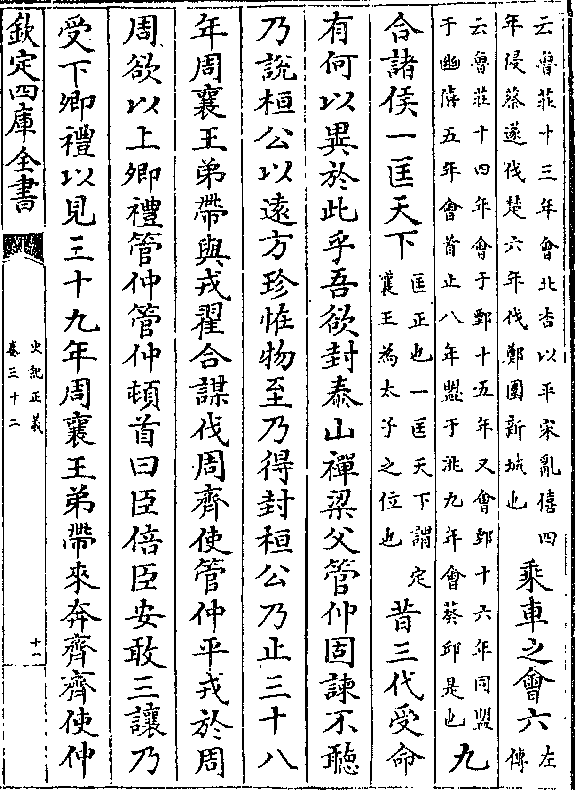 云魯莊十三年會北杏以平宋亂僖四
年侵蔡遂伐楚六年伐鄭圍新城也
乘車之會六
左
傳
云魯莊十四年會于鄄十五年又會鄄十六年同盟
于幽僖五年會首止八年盟于洮九年會葵邱是也
九
合諸侯一匡天下
匡正也一匡天下謂定
襄王為太子之位也
昔三代受命
有何以異於此乎吾欲封泰山禪梁父管仲固諫不聽
乃說桓公以遠方珍恠物至乃得封桓公乃止三十八
年周襄王弟帶與戎翟合謀伐周齊使管仲平戎於周
周欲以上卿禮管仲管仲頓首曰臣倍臣安敢三讓乃
受下卿禮以見三十九年周襄王弟帶來奔齊齊使仲
欽定四庫全書
史記正義
卷三十二
十一